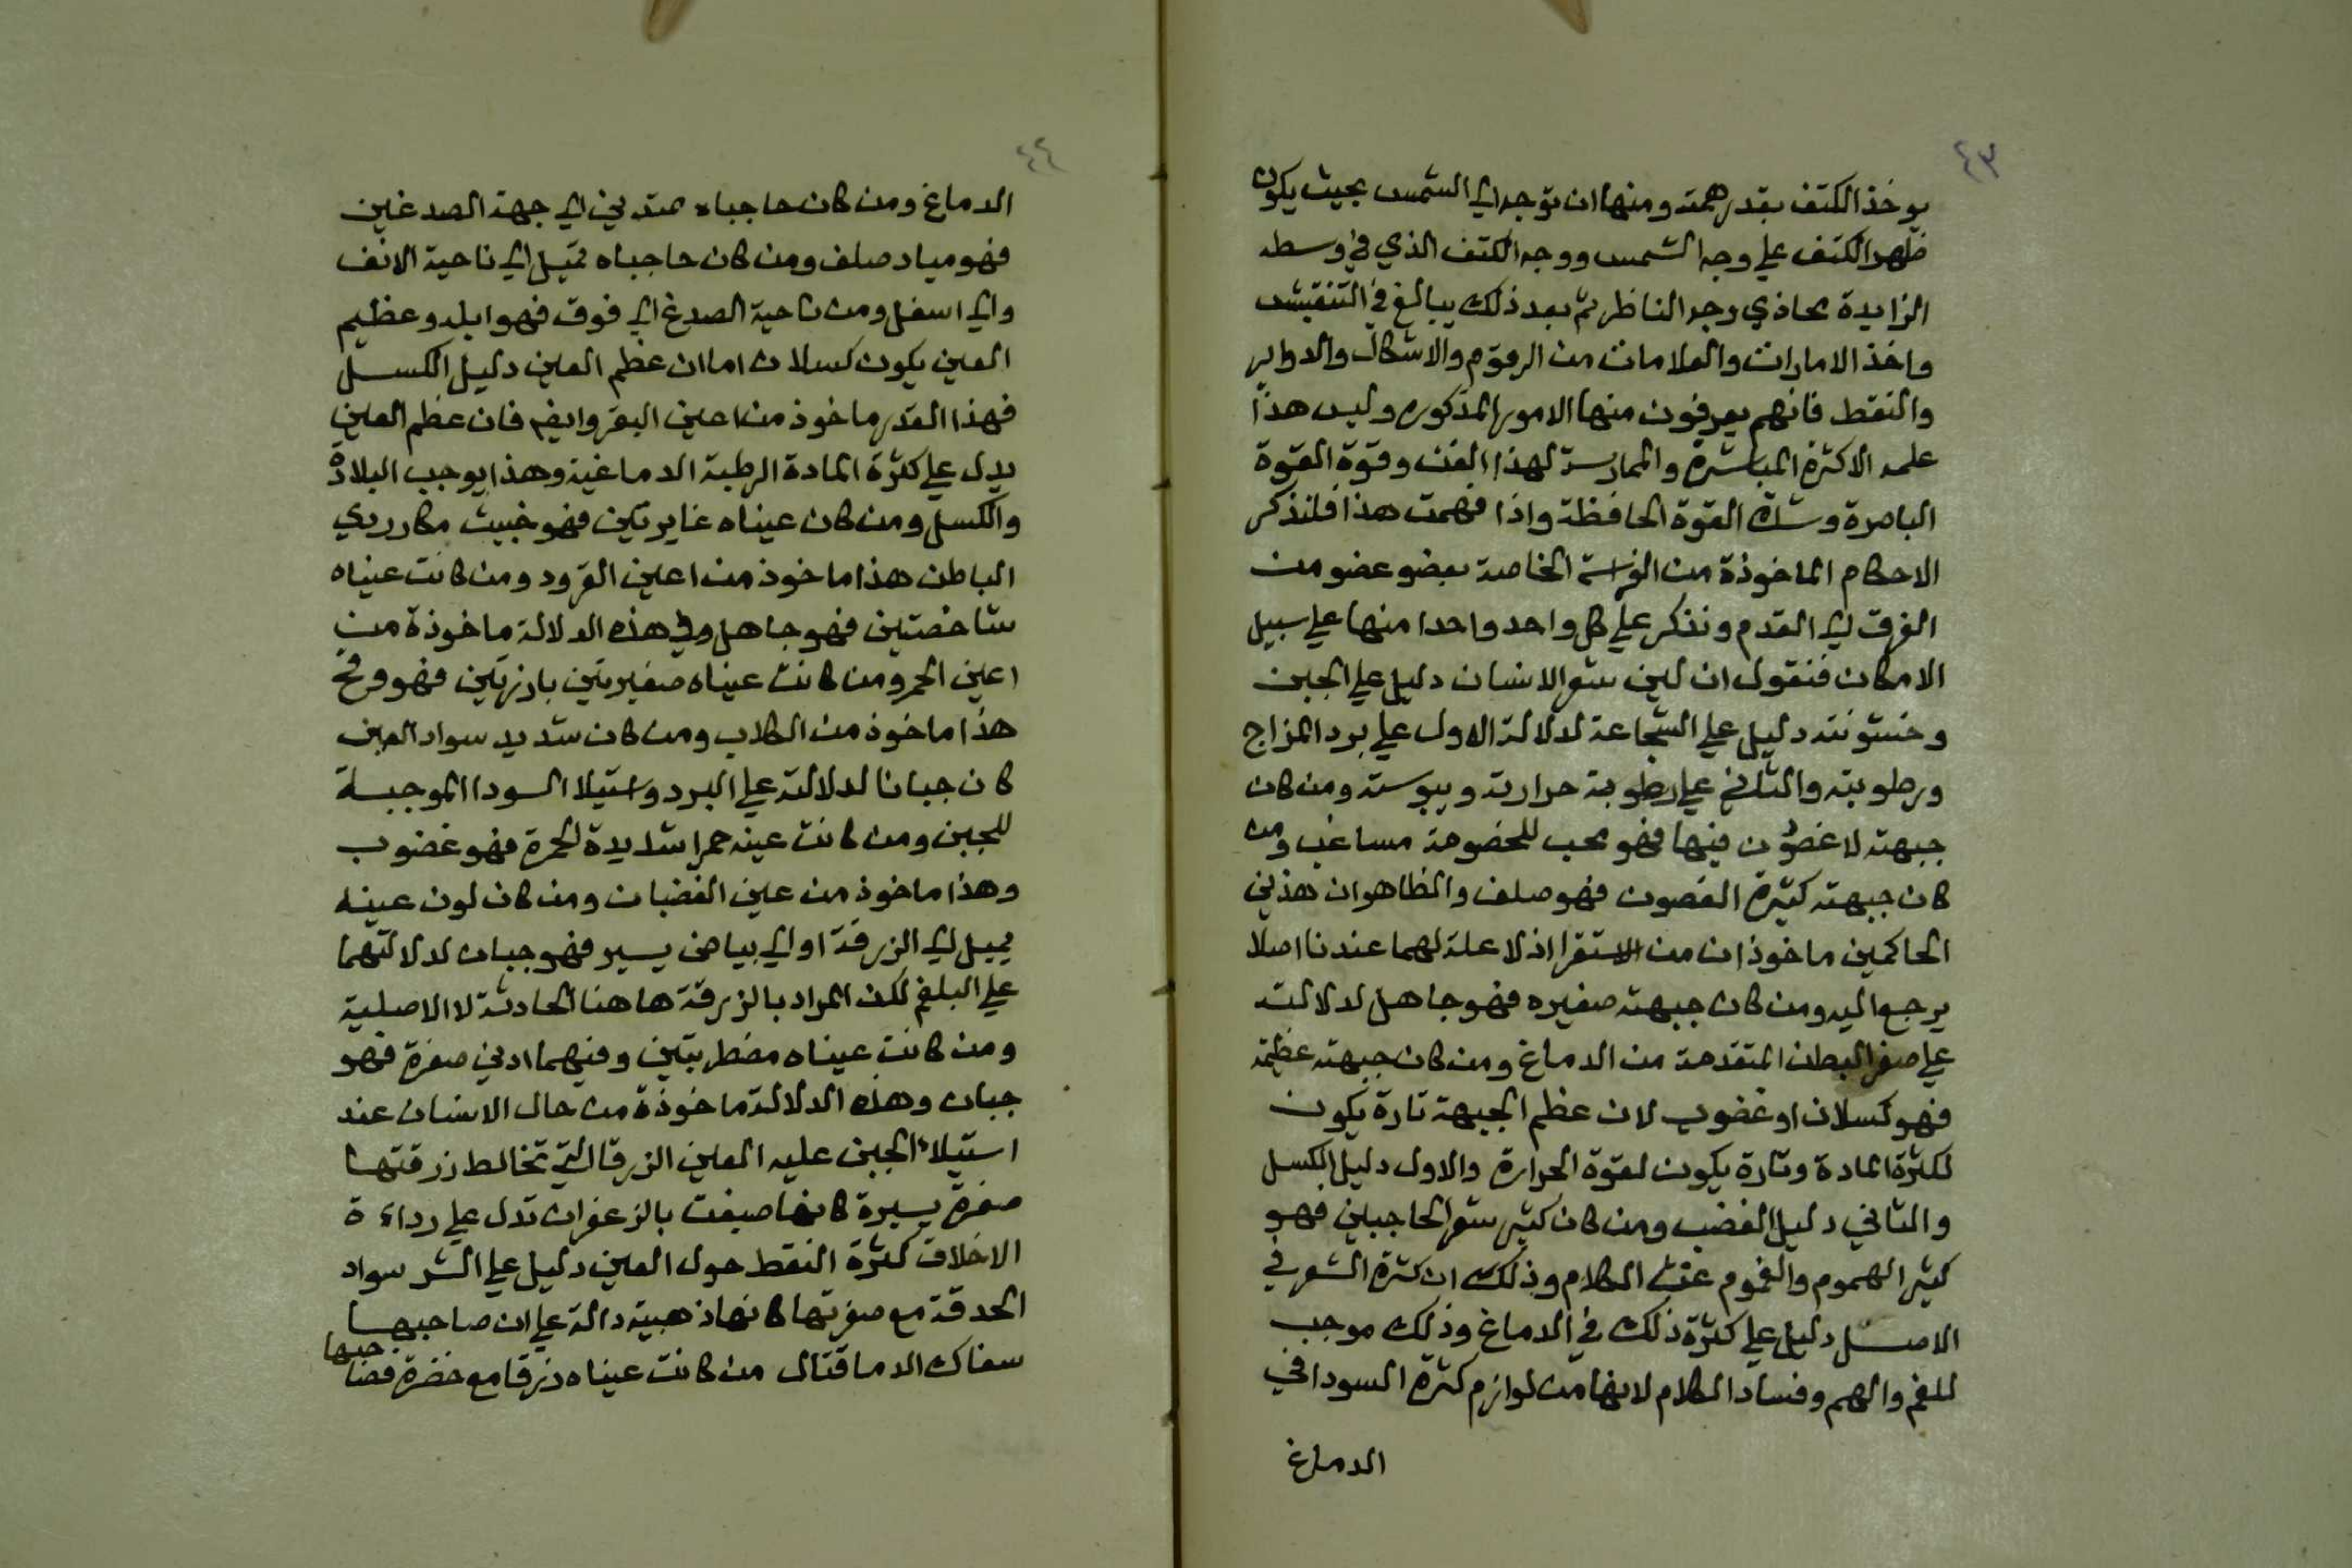 ٤٣
يوخذ الكتف بقدر همته ومنها ان توجه الى الشمس بحيث يكون
ظهر الكتف علي وجه الشمس ووجه الكتف الذي في وسطه
الزايدة محاذي وجه الناظر ثم بعد ذلك يبالغ في التفتيش
واخذ الامارات والعلامات من الرقوم والاشكال والدواير
والنقط فانهم يعرفون منها الامور المذكوره وليس هذا
علمه الاكثرة المباشرة والممارسة لهذا الفن وقوة القوة
الباصرة وشدة القوة الحافظة واذا فهمت هذا فلنذكر
الاحكام الماخوذة من الفراسة الخاصة بعضو عضو من
الفرق الى القدم ونذكر علي كل واحد واحدا منها علي سبيل
الامكان فنقول ان لين شعر الانسان دليل علي الجبن
وخشونته دليل علي الشجاعة لدلالة الاول علي برد المزاج
ورطوبته والثاني علي رطوبة حرارته ويبوسته ومن كان
جبهته لا غضون فيها فهو محب للخصومة مساغب ومن
كان جبهته كثيرة الغضون فهو صلف والظاهر ان هذين
الحاكمين ماخوذان من الاستقرا اذ لا علة لهما عندنا اصلا
يرجع اليه ومن كان جبهته صغيره فهو جاهل لدلالته
علي صغر البطن المتقدمة من الدماغ ومن كان جبهته عظيمة
فهو كسلان او غضوب لان عظم الجبهة تارة يكون
لكثرة المادة وتارة يكون لقوة الحرارة والاول دليل الكسل
والثاني دليل الغضب ومن كان كثير شعر الحاجبين فهو
كثير الهموم والغموم غث الكلام وذلك ان كثرة الشعر في
الاصل دليل علي كثرة ذلك في الدماغ وذلك موجب
للغم والهم وفساد الكلام لانها من لوازم كثرة السودا في
الدماغ
٤٤
الدماغ ومن كان حاجباه ممتدين الى جهة الصدغين
فهو مياد صلف ومن كان حاجباه تميل الى ناحية الانف
والى اسفل ومن ناحية الصدغ الى فوق فهو ابله وعظيم
العين يكون كسلان اما ان عظم العين دليل الكسل
فهذا القدر ماخوذ من اعين البقر وايضا فان عظم العين
يدل علي كثرة المادة الرطبة الدماغية وهذا يوجب البلادة
والكسل ومن كان عيناه غايرتين فهو خبيث مكار ردي
الباطن هذا ماخوذ من اعين القرود ومن كانت عيناه
شاخصتين فهو جاهل وفي هذه الدلالة ماخوذة من
اعين الحمر ومن كانت عيناه صغيرتين بارزتين فهو فرخ
هذا ماخوذ من الكلاب ومن كان شديد سواد العين
كان جبانا لدلالته علي البرد واستيلا السودا الموجبة
للجبن ومن كانت عينه حمرا شديدة الحمرة فهو غضوب
وهذا ماخوذ من عين الغضبان ومن كان لون عينه
يميل الى الزرقة او الى بياض يسير فهو جبان لدلالتهما
علي البلغم لكن المراد بالزرقة هاهنا الحادثة لا الاصلية
ومن كانت عيناه مضطربتين وفيهما ادني صفرة فهو
جبان وهذه الدلالة ماخوذة من حال الانسان عند
استيلاء الجبن عليه العين الزرقا التي تخالط زرقتها
صفرة يسيرة كانها صبغت بالزعفران تدل علي رداءة
الاخلاق كثرة النقط حول العين دليل علي الشر سواد
الحدقة مع صفرتها كانها ذهبية دالة علي ان صاحبها
سفاك الدما قتال من كانت عيناه زرقا مع خضرة فصاحبها